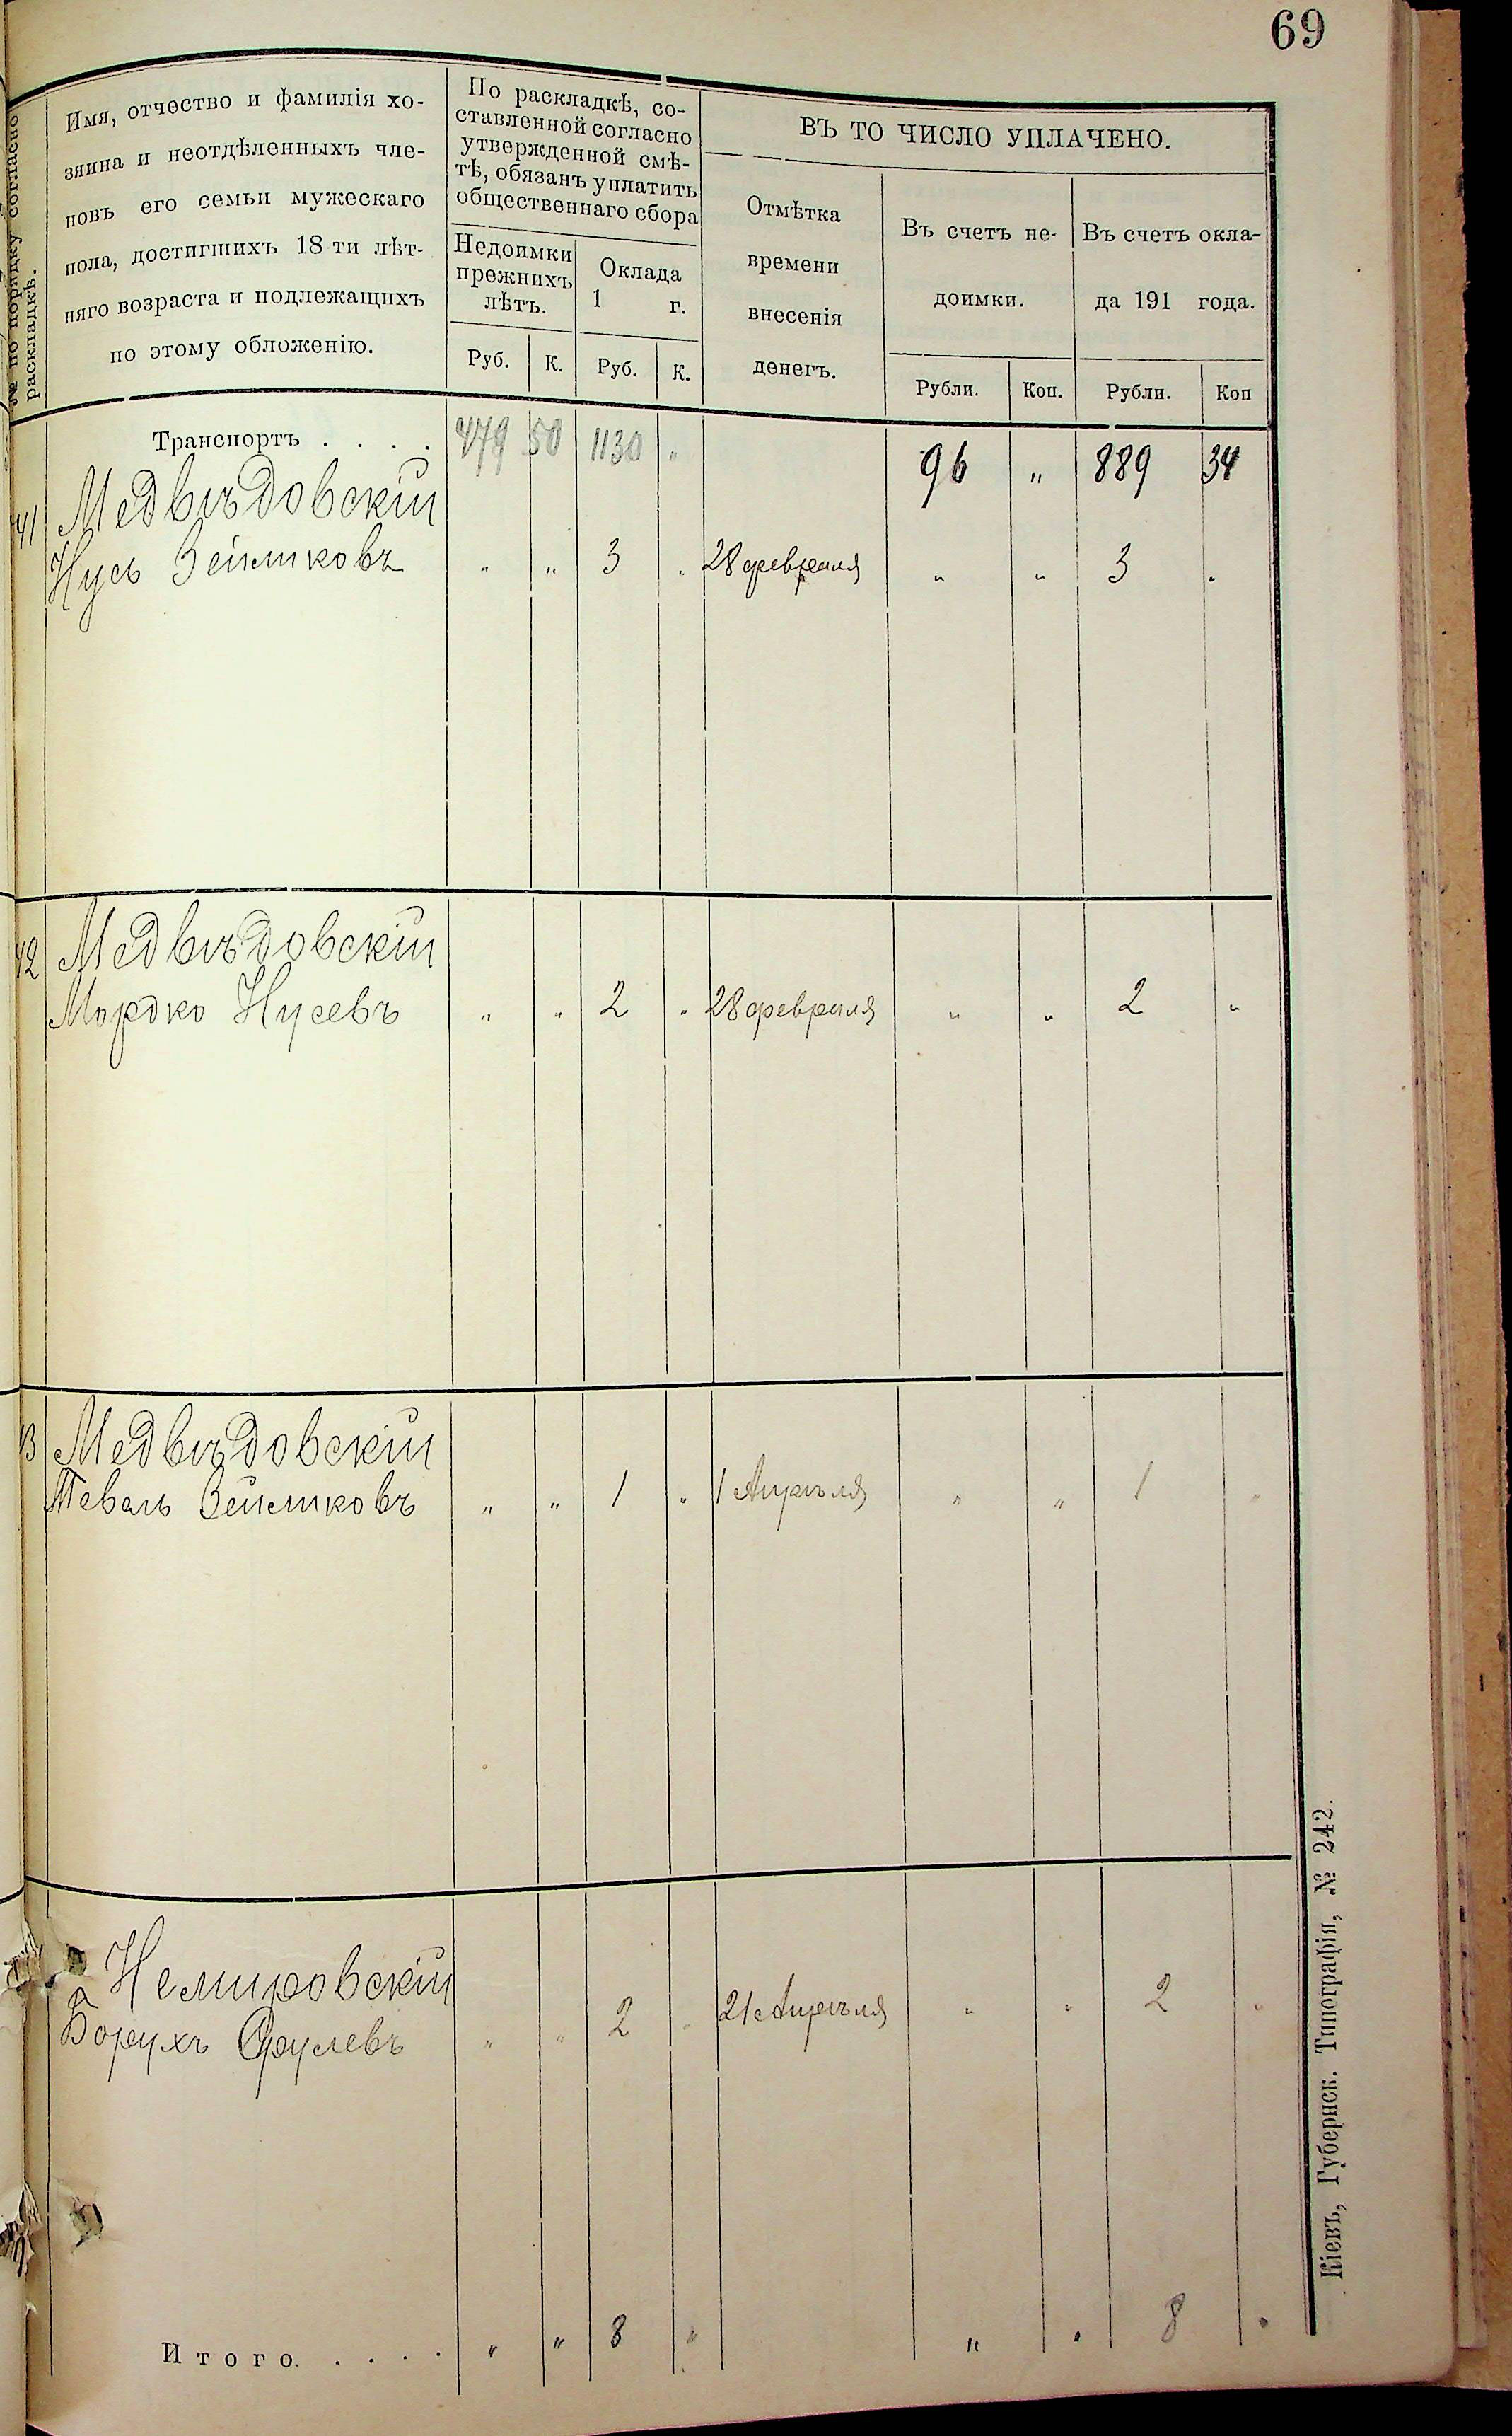 69
№ по порядку согласно раскладкѣ.
Имя, отчество и фамилія хо-
зяина и неотдѣленныхъ чле-
новъ его семьи мужескаго
пола, достигшихъ 18 ти лѣт-
няго возраста и подлежащихъ
по этому обложенію.
По раскладкѣ, со-
ставленной согласно
утвержденной смѣ-
тѣ, обязанъ уплатить
общественнаго сбора
Недоимки
прежнихъ
лѣтъ.
Оклада
1 г.
Руб. К. Руб. К.
ВЪ ТО ЧИСЛО УПЛАЧЕНО.
Отмѣтка
времени
внесенія
денегъ.
Въ счетъ не-
доимки.
Въ счетъ окла-
да 191 года.
Рубли. Коп. Рубли. Коп
Транспортъ . . . . 479 50 1130 " 96 " 889 34
41 Медвѣдовскій
Нусь Зейликовъ " " 3 " 28 февраля " " 3 "
42 Медвѣдовскій
Мордко Нусевъ " " 2 " 28 февраля " " 2 "
Медвѣдовскій
Тевель Зейликовъ " " 1 " 1 Апрѣля " " 1 "
Немировскій
Борухъ Срулевъ " " 2 " 21 Апрѣля " " 2 "
Итого. . . . . " " 8 " " " 8 "
Кіевъ, Губернск. Типографія, № 242.